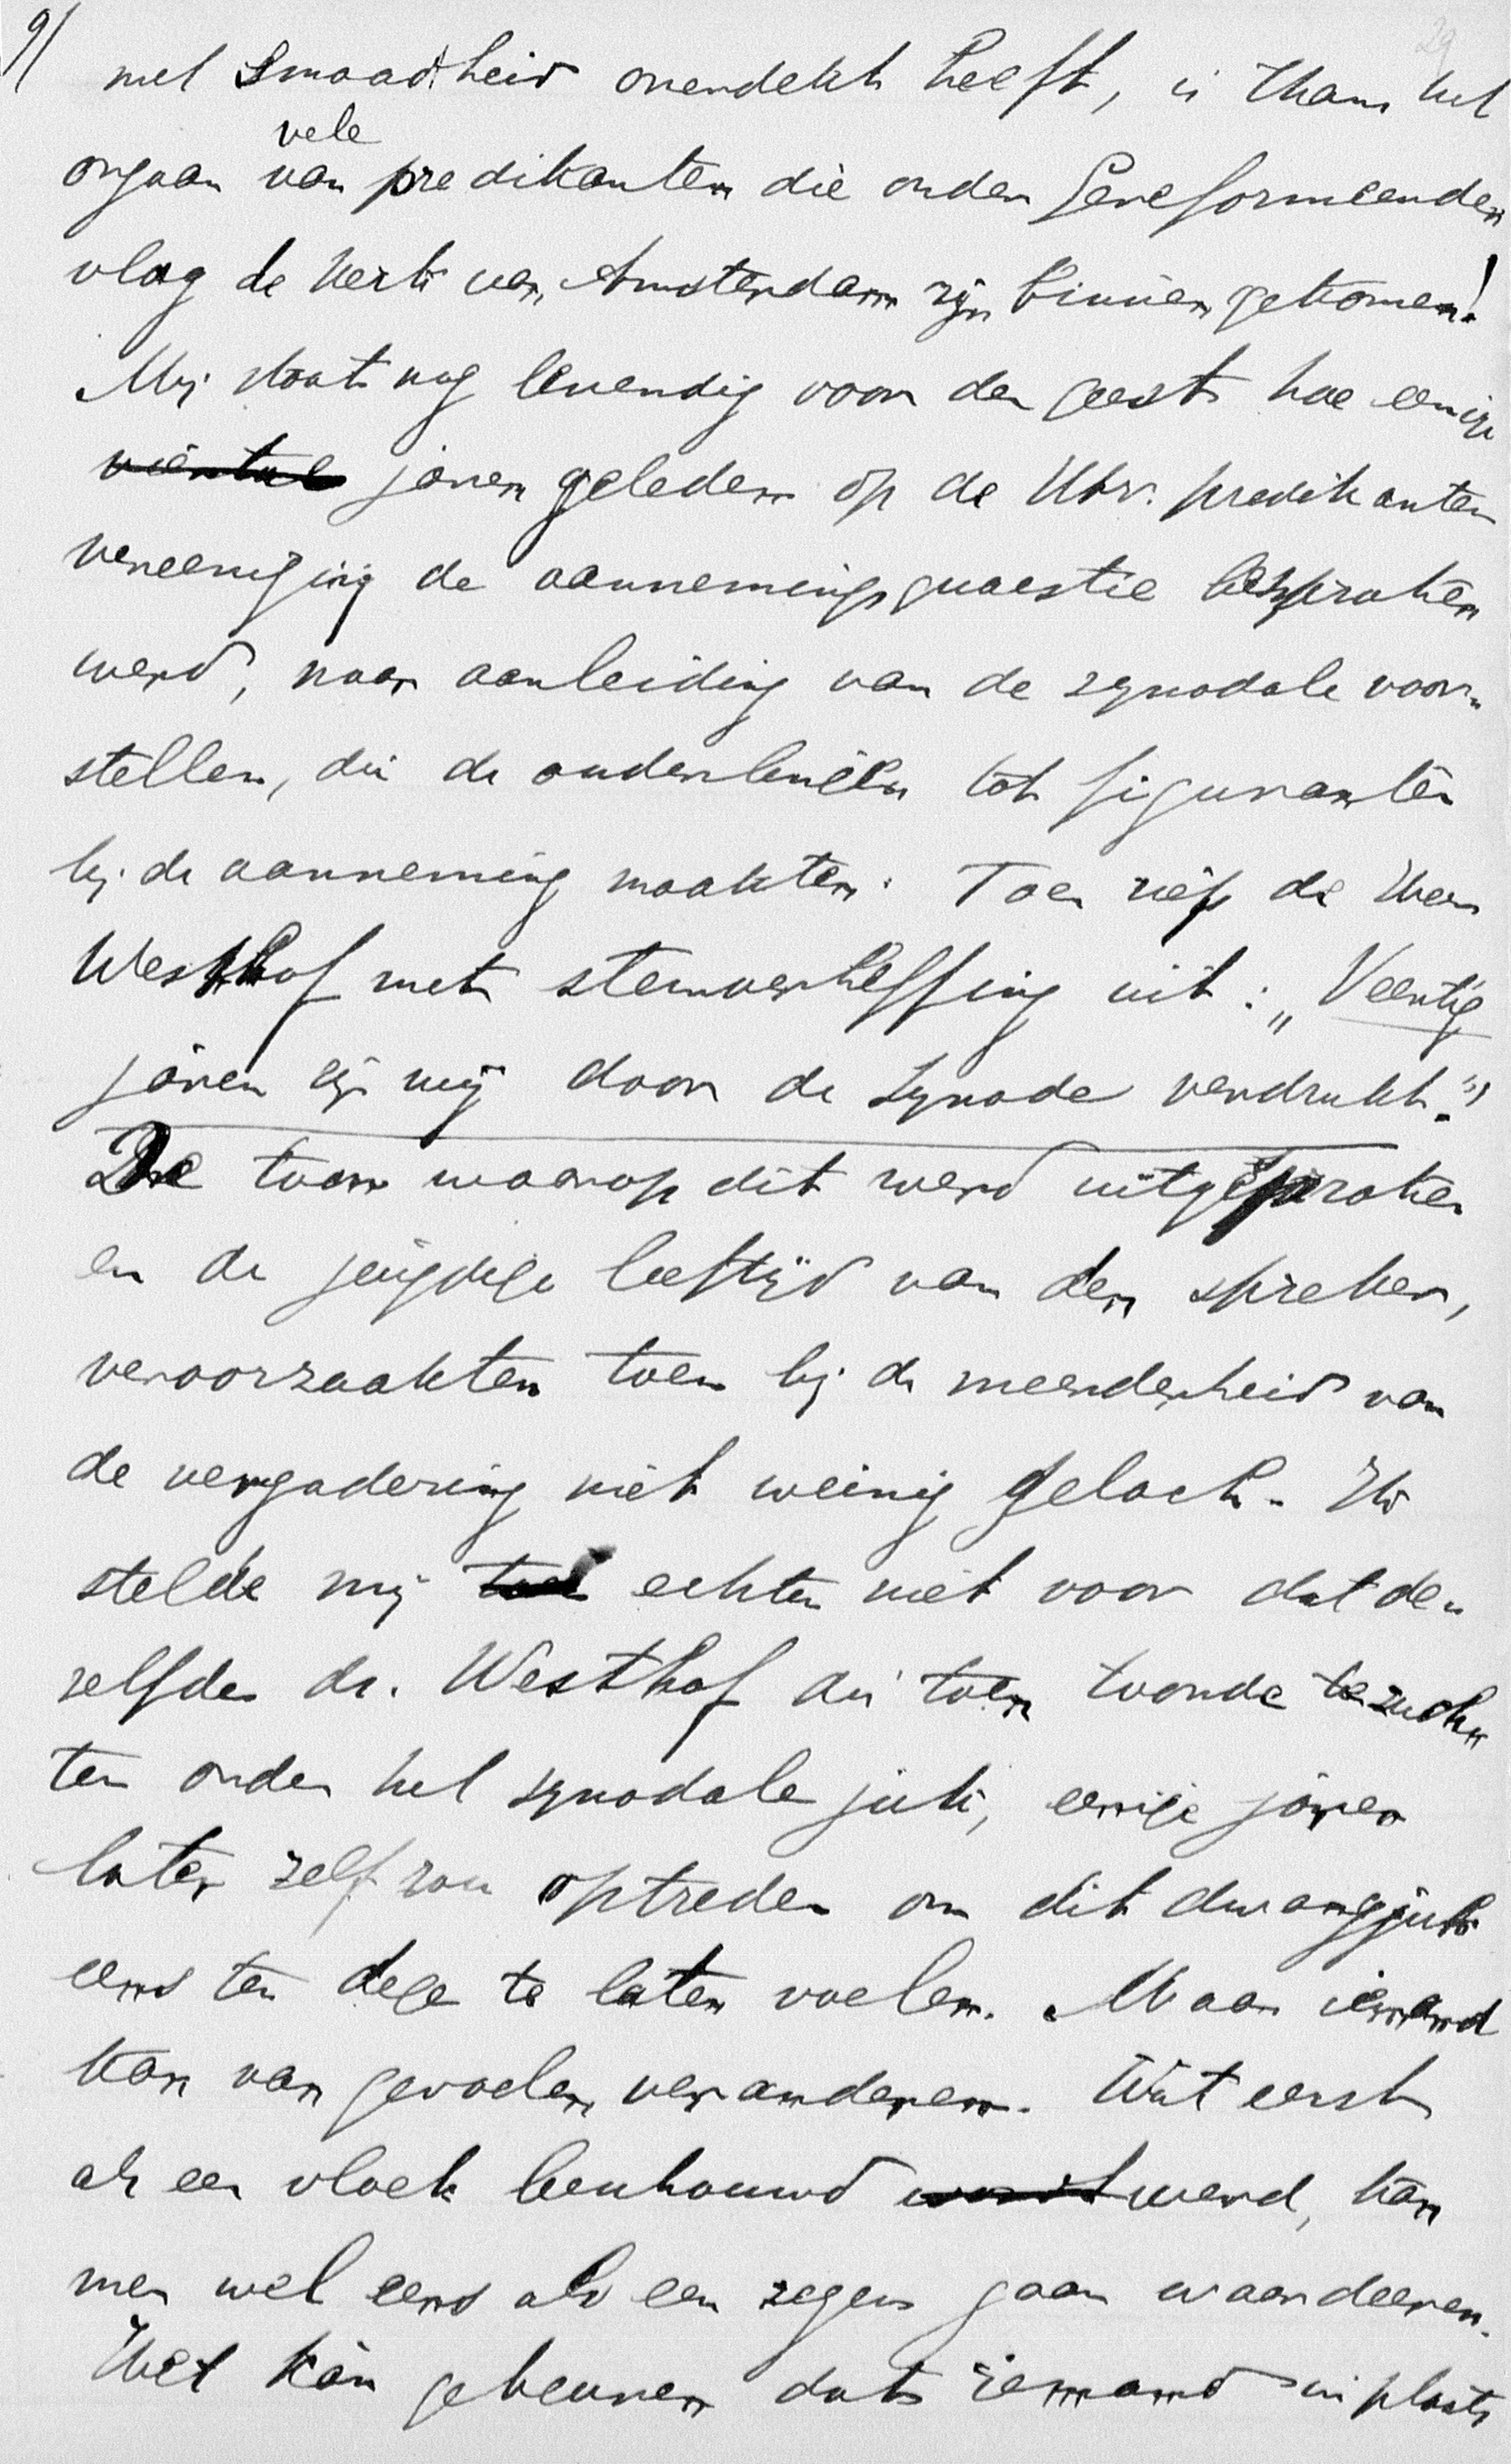 9/ 29
met smaadheid overdekt heeft, is thans het
vele
orgaan van predikanten die onder Gereformeerden
vlag de kerk van Amsterdam zijn binnen gekomen!
Mij staat nog levendig voor den geest hoe eenige
viertal jaren geleden op de Utr. predikanten
vereeniging de aannemingsquaestie besproken
werd, naar aanleiding van de synodale voor-
stellen, die de ouderlingen tot figuranten
bij de aanneming maakten. Toen riep de Heer
Westhof met stemverheffing uit: „Veertig
jaren zijn wij door de Synode verdrukt."
De toon waarop dit werd uitgesproken
en de jeugdige leeftijd van den spreker,
veroorzaakten toen bij de meerderheid van
de vergadering niet weinig gelach. Ik
stelde mij toen echter niet voor dat de-
zelfde ds. Westhof die toen toonde te zuch-
ten onder het synodale juk, eenige jaren
later zelf zou optreden om dit dwangjuk
eens ter dege te laten voelen. Maar iemand
kan van gevoelen veranderen. Wat eerst
als een vloek beschouwd wordt werd, kan
men wel eens als een zegen gaan waardeeren.
Het kan gebeuren dat iemand in plaats